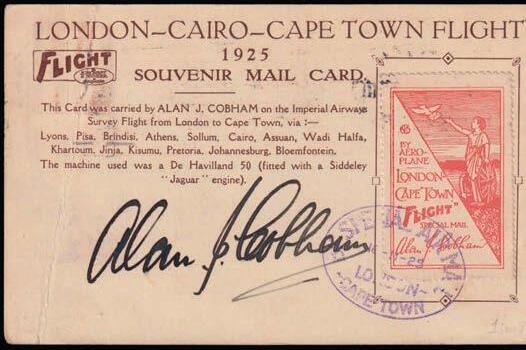 LONDON-CAIRO-CAPE TOWN FLIGHT
1925
FLIGHT
SOUVENIR MAIL CARD
This Card was carried by ALAN J. COBHAM on the Imperial Airways
Survey Flight from London to Cape Town, via :—
Lyons, Pisa, Brindisi, Athens, Sollum, Cairo, Assuan, Wadi Halfa,
Khartoum, Jinja, Kisumu, Pretoria, Johannesburg, Bloemfontein.
The machine used was a De Havilland 50 (fitted with a Siddeley
"Jaguar" engine).
Alan J. Cobham
BY
AERO-
PLANE
LONDON
CAPE TOWN
"FLIGHT"
SPECIAL MAIL
Alan J. Cobham
SPECIAL AIR MAIL
LONDON-
CAPE TOWN